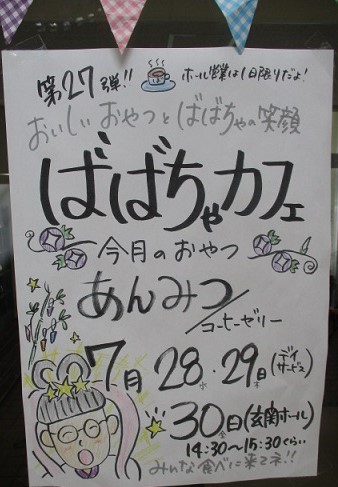 第27弾!!
ホール営業は1日限りだよ!
おいしいおやつとばばちゃの笑顔
ばばちゃカフェ
今月のおやつ
あんみつ/コーヒーゼリー
7月28水・29木(デイサービス)
30日(玄関ホール)
14:30〜15:30ぐらい
みんな食べに来てネ!!